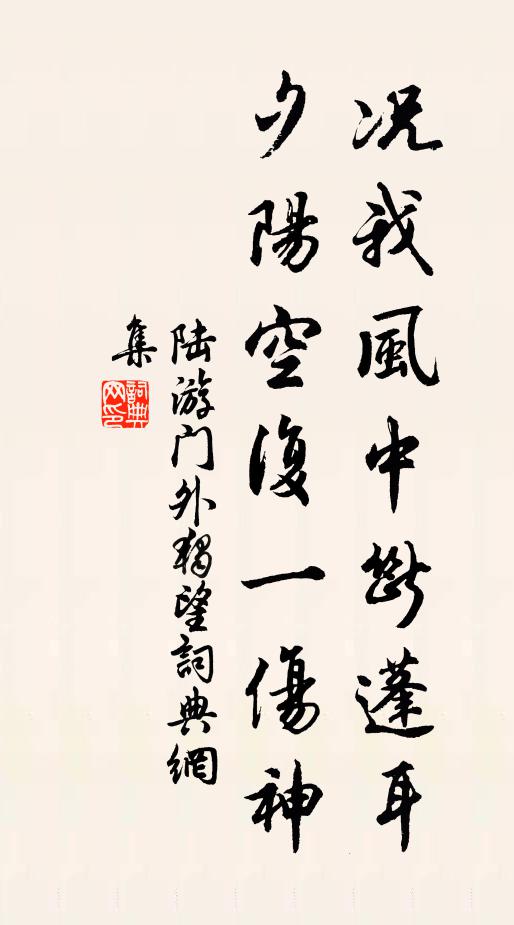 况我風中斷蓬耳
夕陽空復一傷神
陆游门外獨望詞典網
集
詞典網印